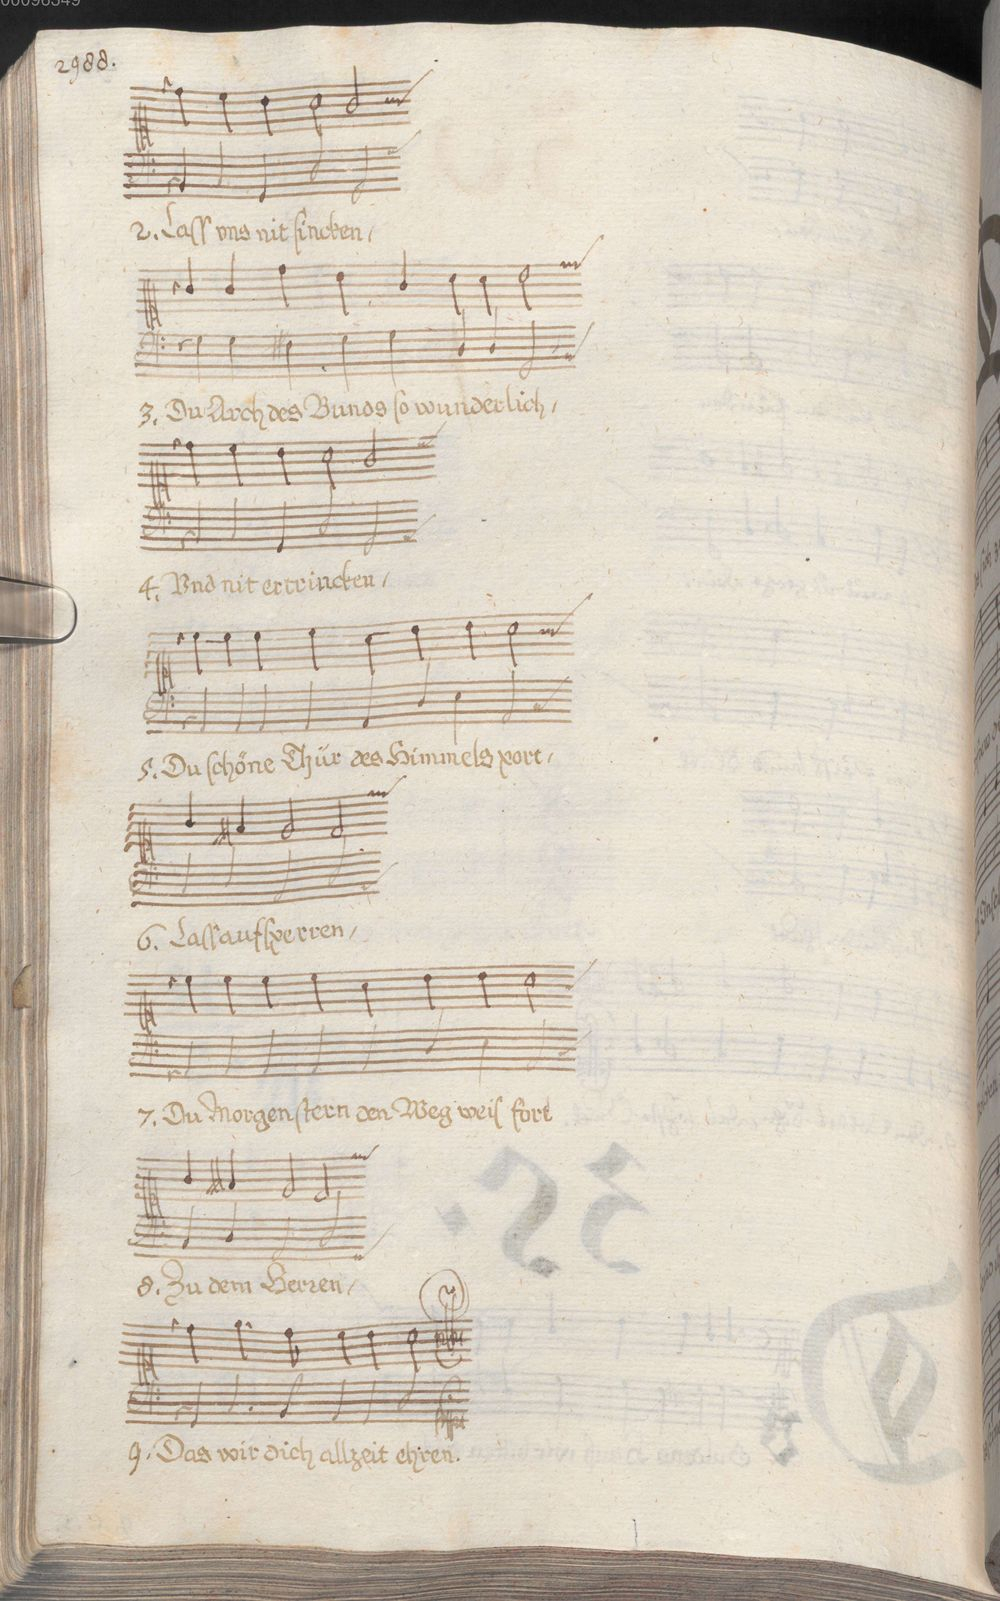 2988.
2. Lass vns nit sincken /
3. Du Arch des Bunds so wunderlich /
4. Vnd nit ertrincken /
5. Du schöne Thür des Himmels port /
6. Lass aufsperren /
7. Du Morgenstern den Weg weis fort
8. Zu dem Herren /
9. Das wir dich allzeit ehren.